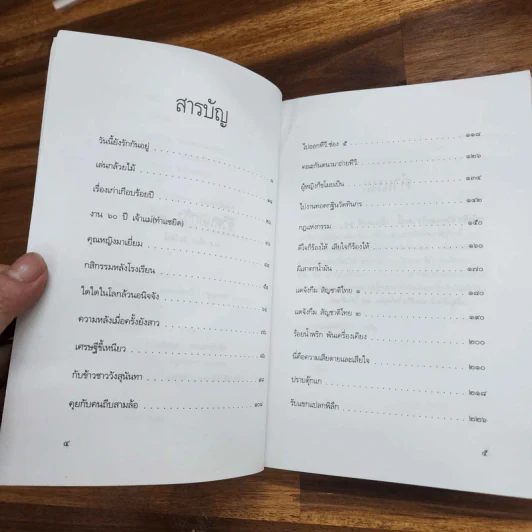 สารบัญ
วันนี้ยังรักกันอยู่
เล่นกล้วยไม้
เรื่องเก่าเกือบร้อยปี
งาน ๖๐ ปี เจ้าแม่(ทำแซยิด)
คุณหญิงมาเยี่ยม
กสิกรรมหลังโรงเรียน
ใดใดในโลกล้วนอนิจจัง
ความหลังเมื่อครั้งยังสาว
เศรษฐีขี้เหนียว
กับข้าวชาววังสุนันทา
คุยกับคนถีบสามล้อ
๔
ไปออกทีวี ช่อง ๕ ๑๑๘
คณะกันตนามาถ่ายทีวี ๑๒๖
ผู้หญิงก็ขโมยเป็น ๑๓๔
ไปงานทอดกฐินวัดหินกร ๑๔๒
กฎแห่งกรรม ๑๕๐
ดีใจก็ร้องไห้ เสียใจก็ร้องไห้ ๑๖๐
ผีเสกกน้ำมัน ๑๗๐
แดจังกึม สัญชาติไทย ๑ ๑๘๐
แดจังกึม สัญชาติไทย ๒ ๑๙๐
ร้อยน้ำพริก พันเครื่องเคียง ๒๐๐
นี่คือความเสียดายและเสียใจ ๒๑๐
ปราบตุ๊กแก ๒๑๘
รับแขกแปลกพิลึก ๒๒๖
๕